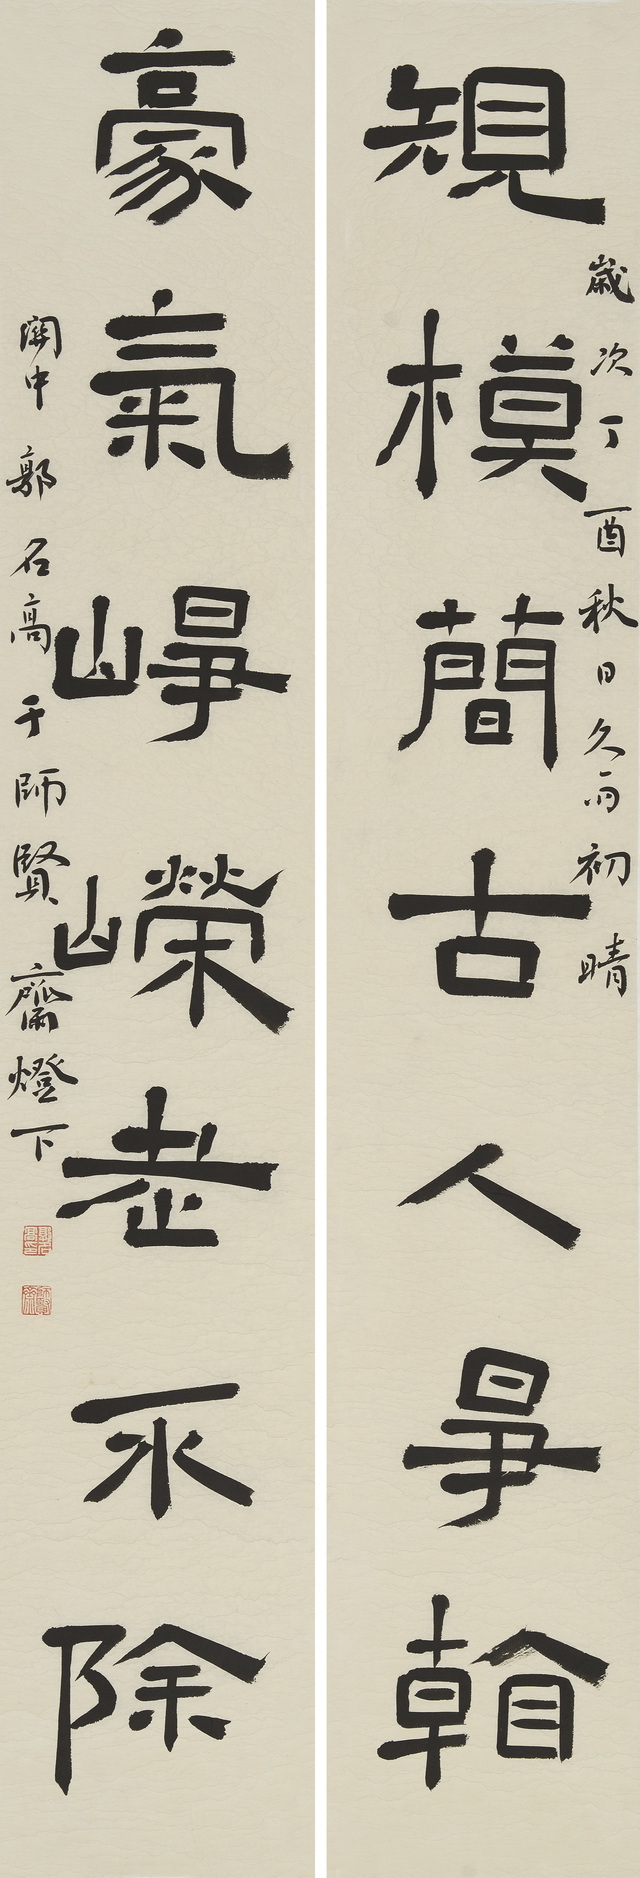 規模簡古人爭看
歲次丁酉秋日久雨初晴
豪氣崢嶸老不除
關中郭名高于師賢齋燈下